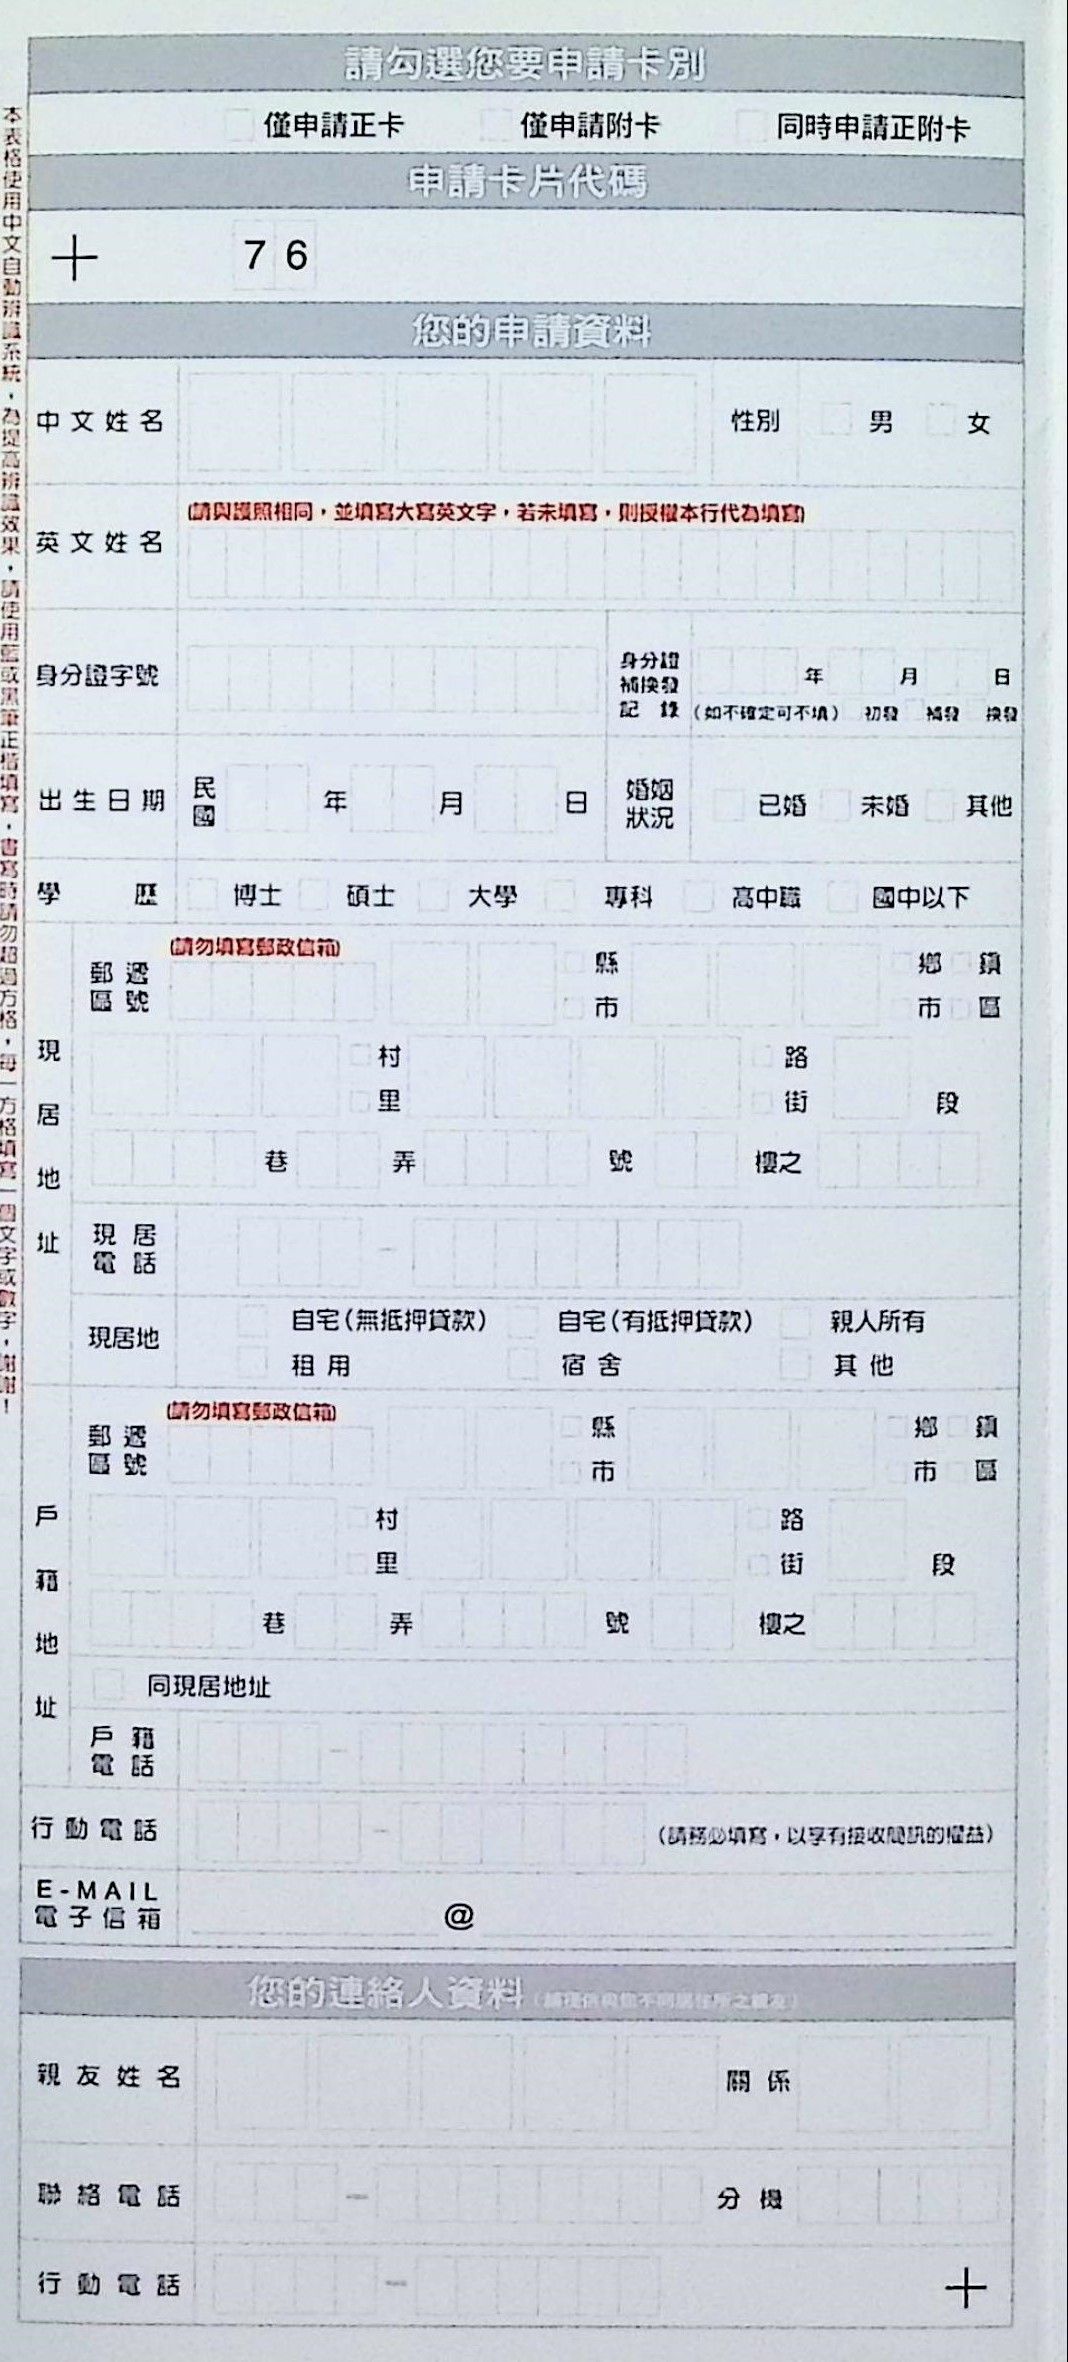 請勾選您要申請卡別
僅申請正卡 僅申請附卡 同時申請正附卡
申請卡片代碼
76
您的申請資料
中文姓名 性別 男 女
英文姓名 (請與護照相同，並填寫大寫英文字，若未填寫，則授權本行代為填寫)
身分證字號 身分證補換發記錄 年 月 日
(如不確定可不填) 初發 補發 換發
出生日期 民國 年 月 日 婚姻狀況 已婚 未婚 其他
學歷 博士 碩士 大學 專科 高中職 國中以下
現居地址
郵遞區號 (請勿填寫郵政信箱) 縣 市 鄉 鎮 市 區
村 里 路 街 段
巷 弄 號 樓之
現居電話 -
現居地 自宅(無抵押貸款) 自宅(有抵押貸款) 親人所有
租用 宿舍 其他
戶籍地址
郵遞區號 (請勿填寫郵政信箱) 縣 市 鄉 鎮 市 區
村 里 路 街 段
巷 弄 號 樓之
同現居地址
戶籍電話 -
行動電話 - (請務必填寫，以享有接收簡訊的權益)
E-MAIL
電子信箱 @
您的連絡人資料
親友姓名 關係
聯絡電話 - 分機
行動電話 -
本表格使用中文自動辨識系統，為提高辨識效果，請使用藍或黑筆正楷填寫，書寫時請勿超過方格，每一方格填寫一個文字或數字，謝謝！